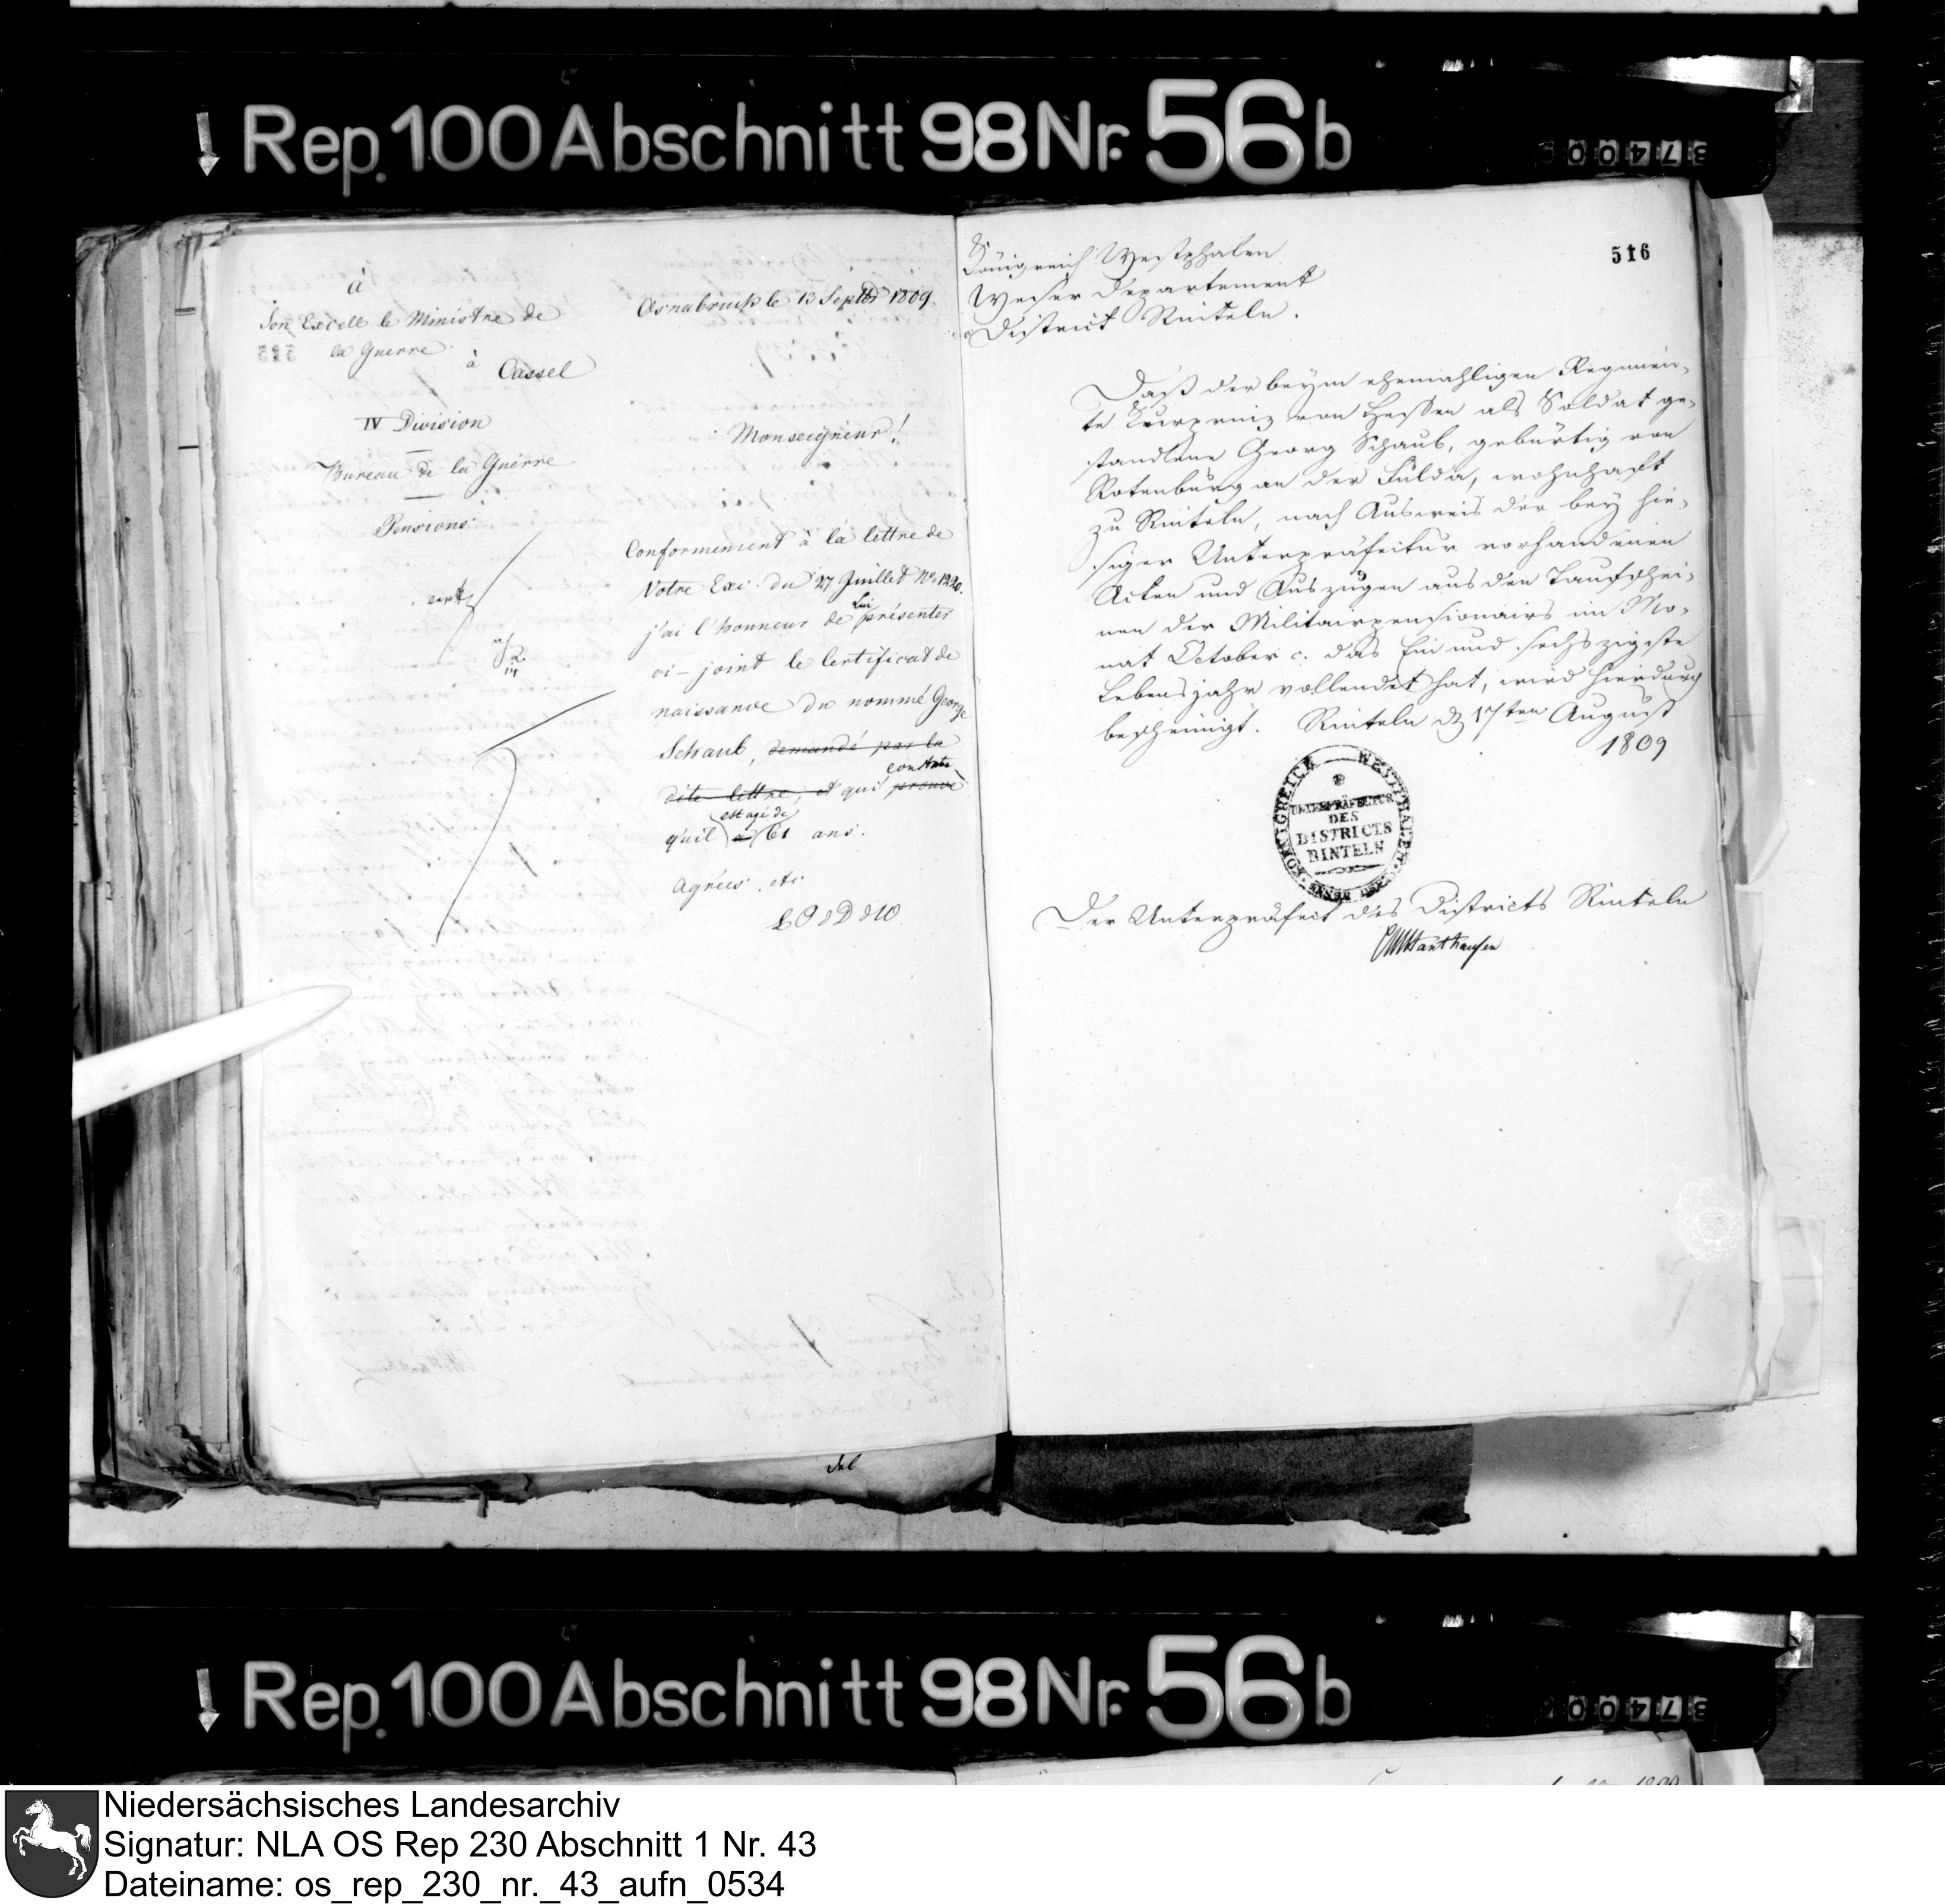 Rep. 100 Abschnitt 98 Nr. 56 b
à
Son Excell le Ministre de
la Guerre
à Cassel
IV Division
Bureau de la Guerre
Pensions
Osnabruck le 13 Septbr 1809
Monseigneur!
Conformement à la lettre de
Votre Exc. du 27 Juillet No. 1220.
j'ai l'honneur de Lui présenter
ci-joint le Certificat de
naissance du nommé George
Schaub, demandé par la
dite lettre, et qui prouve constate
qu'il a est agé de 61 ans.
Agréés, etc
L P d D d W.
516
Königreich Westphalen
Weser Departement
District Rinteln.
Daß der beym ehemahligen Regimen-
te Kurprinz von Hessen als Soldat ge-
standene Georg Schaub, gebürtig von
Rotenburg an der Fulda, wohnhaft
zu Rinteln, nach Ausweis der bey hie-
siger Unterpräfectur vorhandenen
Acten und Auszügen aus den Taufschei-
nen der Militairpensionairs im Mo-
nat October c. das Ein und sechszigste
Lebensjahr vollendet hat, wird hierdurch
bescheinigt. Rinteln d 17ten August
1809
KOENIGREICH WESTPHALEN
UNTERPRÄFECTUR
DES
DISTRICTS
RINTELN
WESER DEP.
Der Unterpräfect des Districts Rinteln
Rep. 100 Abschnitt 98 Nr. 56 b
Niedersächsisches Landesarchiv
Signatur: NLA OS Rep 230 Abschnitt 1 Nr. 43
Dateiname: os_rep_230_nr._43_aufn_0534